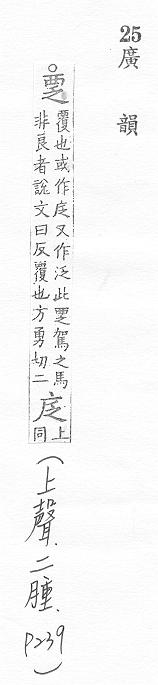 25
廣韻
覂
覆也或作又作泛此覂駕之馬
非良者說文曰反覆也方勇切二
上同
（上聲.二腫. P239）